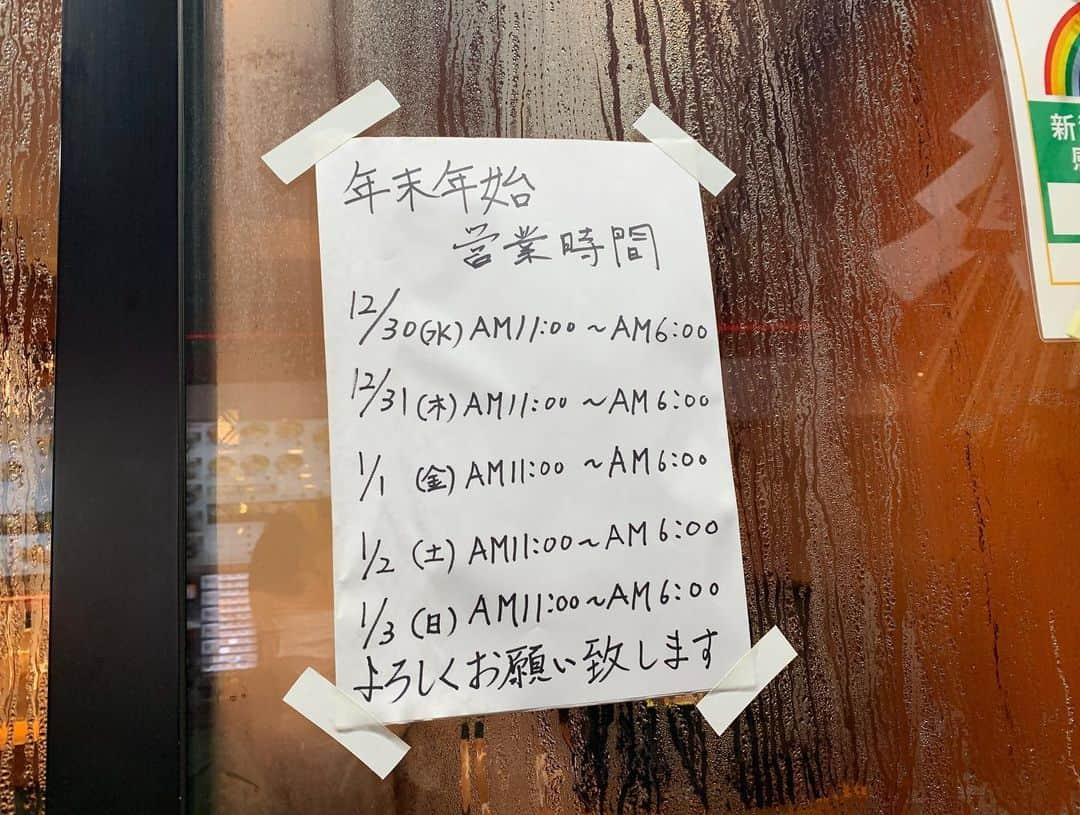 年末年始
営業時間
12/30(水)AM11:00～AM6:00
12/31(木)AM11:00～AM6:00
1/1 (金)AM11:00～AM6:00
1/2 (土)AM11:00～AM6:00
1/3 (日)AM11:00～AM6:00
よろしくお願い致します
新